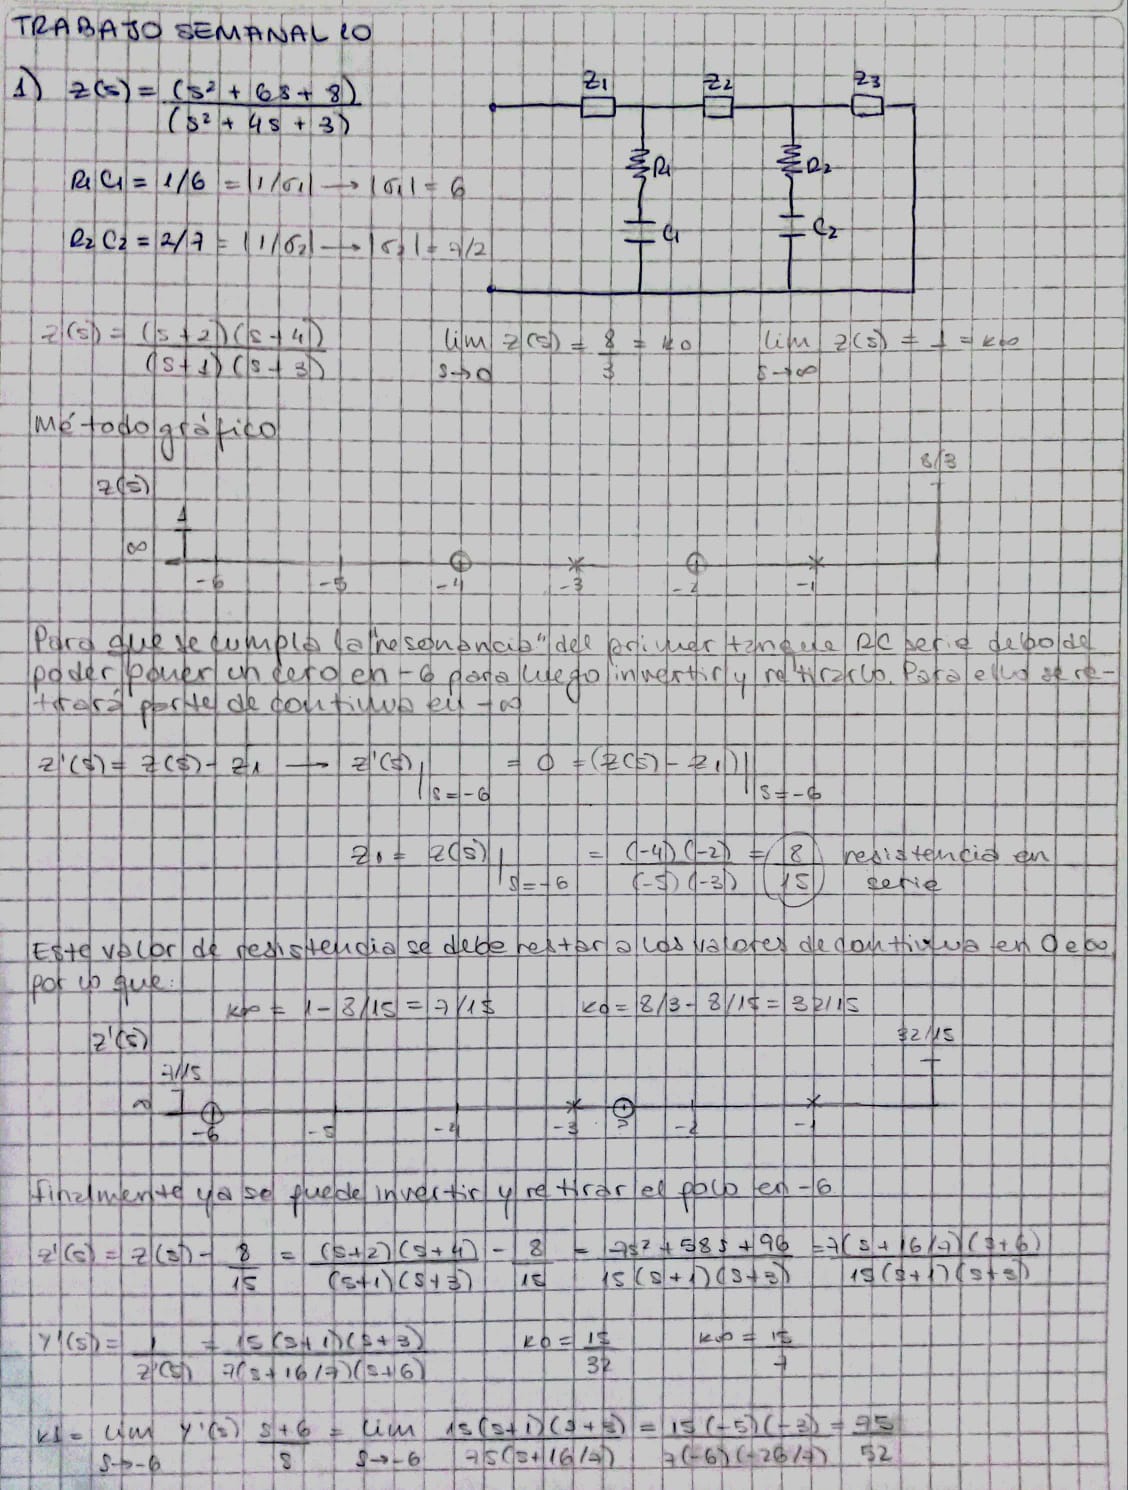 TRABAJO SEMANAL 10
1) Z(s) = (s² + 6s + 8) / (s² + 4s + 3)
Z1 Z2 Z3
R1 R2
C1 C2
R1C1 = 1/6 = |1/σ1| → |σ1| = 6
R2C2 = 2/7 = |1/σ2| → |σ2| = 7/2
Z(s) = (s+2)(s+4) / (s+1)(s+3) lim s→0 Z(s) = 8/3 = k0 lim s→∞ Z(s) = 1 = k∞
Método gráfico
8/3
Z(s)
1
∞ -6 -5 -4 -3 -2 -1
Para que se cumpla la "resonancia" del primer tanque RC serie debo de
poder poner un cero en -6 para luego invertir y retirarlo. Para ello se re-
tirará parte de continua en -∞
Z'(s) = Z(s) - Z1 → Z'(s)|s=-6 = 0 = (Z(s) - Z1)|s=-6
Z1 = Z(s)|s=-6 = (-4)(-2) / (-5)(-3) = 8/15 resistencia en serie
Este valor de resistencia se debe restar a los valores de continua en 0 e ∞
por lo que:
k∞ = 1 - 8/15 = 7/15 k0 = 8/3 - 8/15 = 32/15
Z'(s) 32/15
7/15
∞ -6 -5 -4 -3 ? -2 -1
finalmente ya se puede invertir y retirar el polo en -6
Z'(s) = Z(s) - 8/15 = (s+2)(s+4) / (s+1)(s+3) - 8/15 = 7s² + 58s + 96 / 15(s+1)(s+3) = 7(s+16/7)(s+6) / 15(s+1)(s+3)
Y'(s) = 1/Z'(s) = 15(s+1)(s+3) / 7(s+16/7)(s+6) k0 = 15/32 k∞ = 15/7
k1 = lim s→-6 Y'(s) s+6/s = lim s→-6 15(s+1)(s+3) / 7s(s+16/7) = 15(-5)(-3) / 7(-6)(-26/7) = 75/52